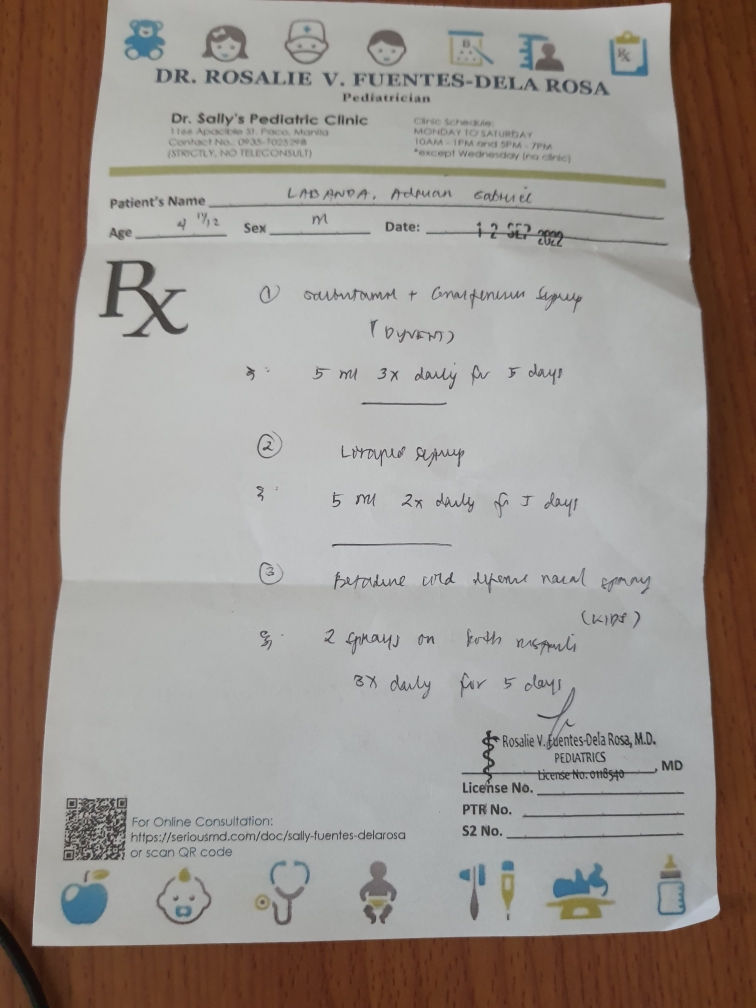 DR. ROSALIE V. FUENTES-DELA ROSA
Pediatrician
Dr. Sally's Pediatric Clinic
1166 Apacible St. Paco, Manila
Contact No. 0935-1025298
(STRICTLY, NO TELECONSULT)
Clinic Schedule:
MONDAY TO SATURDAY
10AM - 1PM and 5PM - 7PM
*except Wednesday (no clinic)
Patient's Name LABANDA, Adrian Gabriel
Age 4 11/12 Sex m Date: 12 SEP 2022
Rx
① Salbutamol + Guaifenesin Syrup
(DYVENT)
5 ml 3x daily for 5 days
② syrup
5 ml 2x daily for 5 days
③ Betadine cold defense nasal spray
(KIDS)
2 sprays on both nostrils
3x daily for 5 days
Rosalie V. Fuentes-Dela Rosa, M.D.
PEDIATRICS
License No. 0118540
, MD
License No.
PTR No.
S2 No.
For Online Consultation:
https://seriousmd.com/doc/sally-fuentes-delarosa
or scan QR code